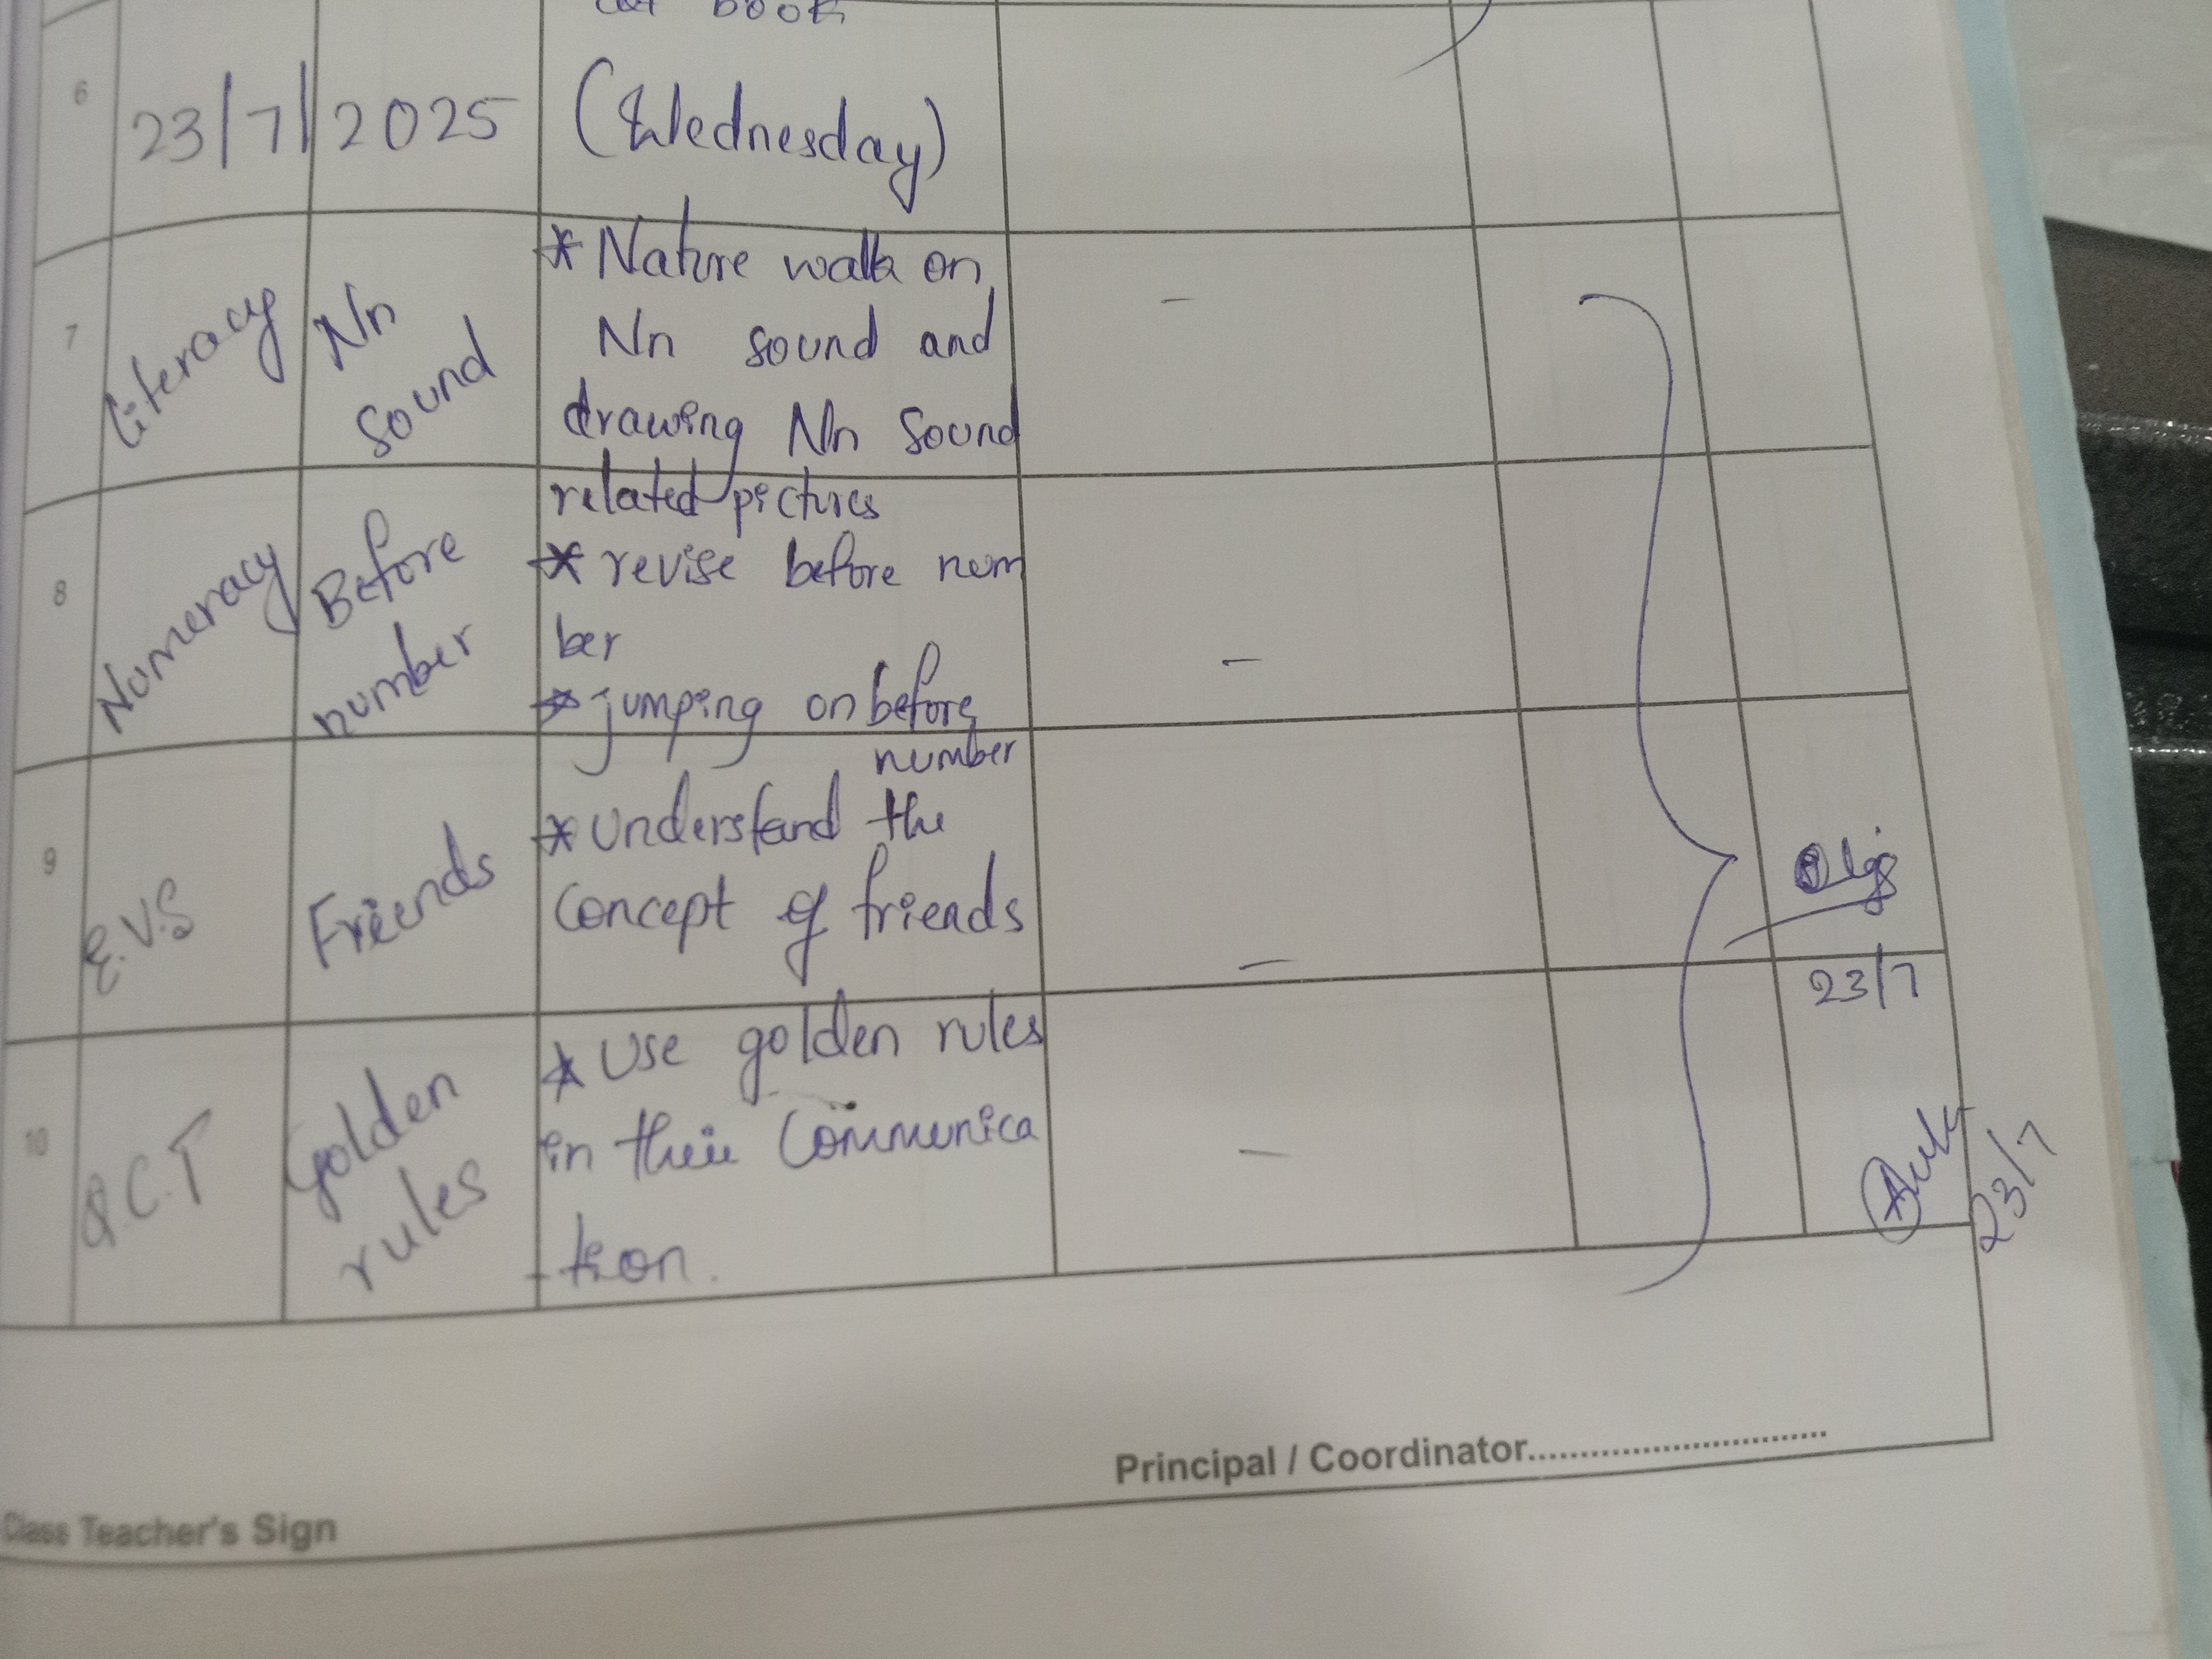 book
6
23/7/2025 (Wednesday)
7
Literacy
Nn
sound
* Nature walk on
Nn sound and
drawing Nn sound
related pictures
-
8
Numeracy
Before
number
* revise before num
ber
* jumping on before
number
-
9
E.V.S
Friends
* understand the
concept of friends
-
23/7
10
Golden
rules
* Use golden rules
in their Communica
-tion.
-
23/7
Principal / Coordinator..............................
Class Teacher's Sign